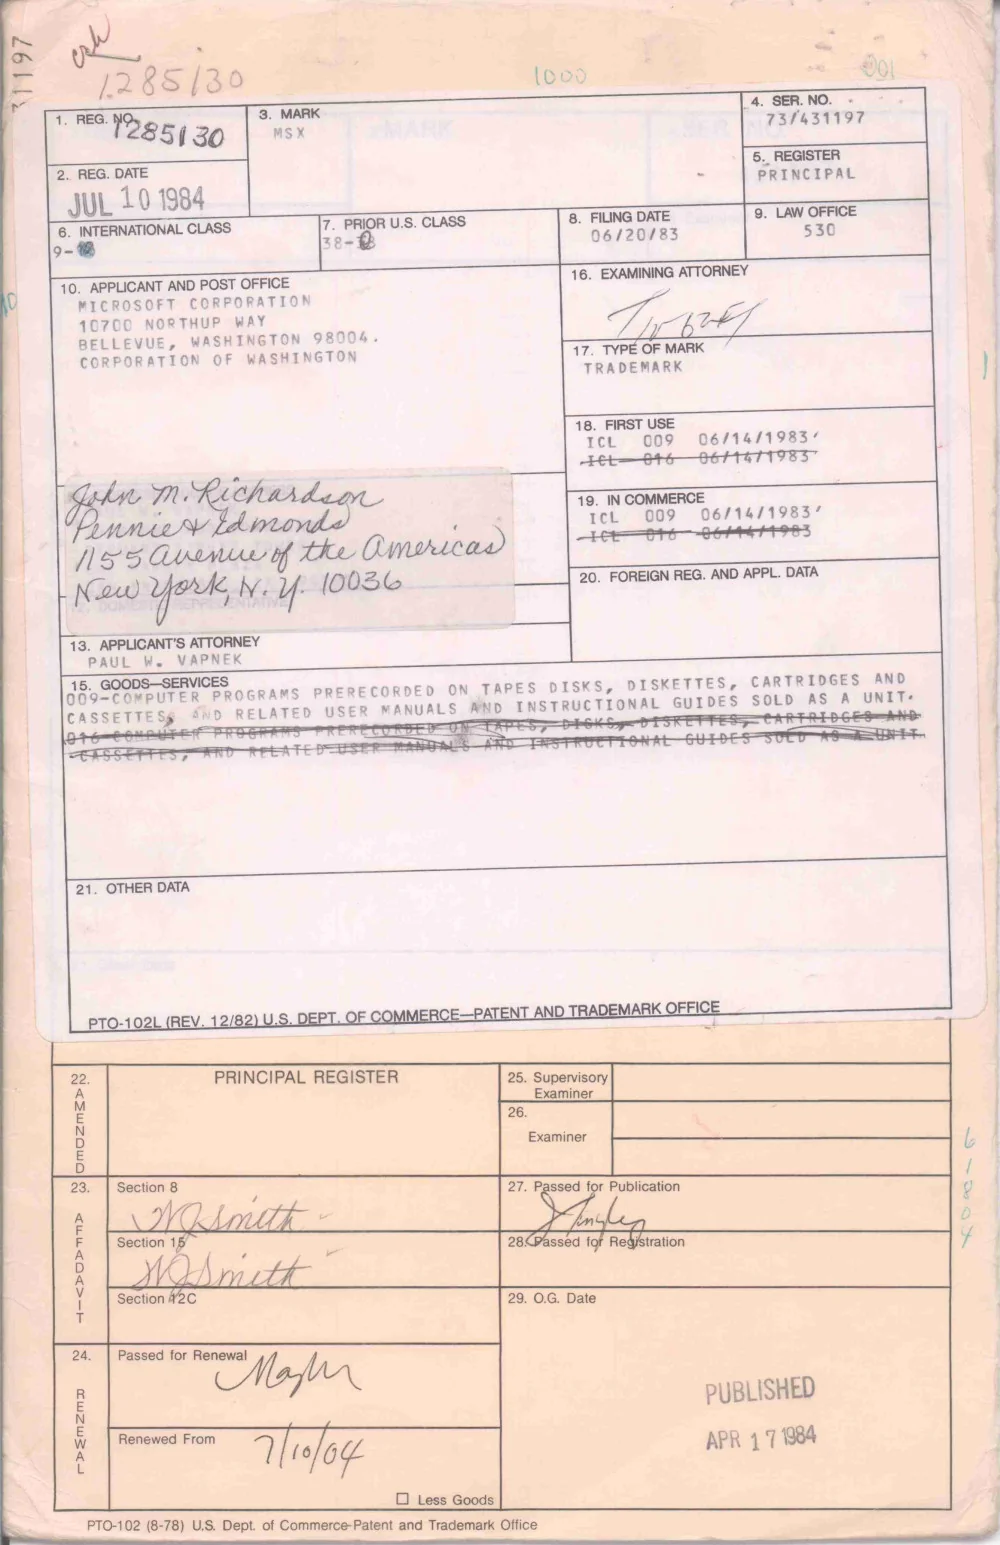 31197
1285130
1000
001
1. REG. NO.
1285130
3. MARK
MSX
4. SER. NO.
73/431197
2. REG. DATE
JUL 10 1984
5. REGISTER
PRINCIPAL
6. INTERNATIONAL CLASS
9-
7. PRIOR U.S. CLASS
38-
8. FILING DATE
06/20/83
9. LAW OFFICE
530
10. APPLICANT AND POST OFFICE
MICROSOFT CORPORATION
10700 NORTHUP WAY
BELLEVUE, WASHINGTON 98004.
CORPORATION OF WASHINGTON
16. EXAMINING ATTORNEY
17. TYPE OF MARK
TRADEMARK
18. FIRST USE
ICL 009 06/14/1983
ICL 016 06/14/1983
19. IN COMMERCE
ICL 009 06/14/1983
ICL 016 06/14/1983
20. FOREIGN REG. AND APPL. DATA
John M. Richardson
Pennie & Edmonds
1155 Avenue of the Americas
New York, N.Y. 10036
13. APPLICANT'S ATTORNEY
PAUL W. VAPNEK
15. GOODS—SERVICES
009-COMPUTER PROGRAMS PRERECORDED ON TAPES DISKS, DISKETTES, CARTRIDGES AND
CASSETTES, AND RELATED USER MANUALS AND INSTRUCTIONAL GUIDES SOLD AS A UNIT.
016-COMPUTER PROGRAMS PRERECORDED ON TAPES, DISKS, DISKETTES, CARTRIDGES AND
CASSETTES, AND RELATED USER MANUALS AND INSTRUCTIONAL GUIDES SOLD AS A UNIT.
21. OTHER DATA
PTO-102L (REV. 12/82) U.S. DEPT. OF COMMERCE—PATENT AND TRADEMARK OFFICE
22. AMENDED
PRINCIPAL REGISTER
25. Supervisory
Examiner
26.
Examiner
23. AFFADAVIT
Section 8
WJ Smith
Section 15
WJ Smith
Section 12C
27. Passed for Publication
28. Passed for Registration
29. O.G. Date
PUBLISHED
APR 17 1984
24. RENEWAL
Passed for Renewal
Renewed From
7/10/04
Less Goods
61804
PTO-102 (8-78) U.S. Dept. of Commerce-Patent and Trademark Office